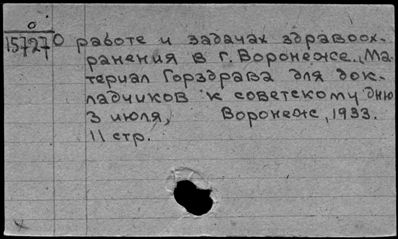 15727
О работе и задачах здравоох-
ранения в г. Воронеже. Ма-
териал Горздрава для док-
ладчиков к советскому дню
3 июля, Воронеж, 1933.
11 стр.